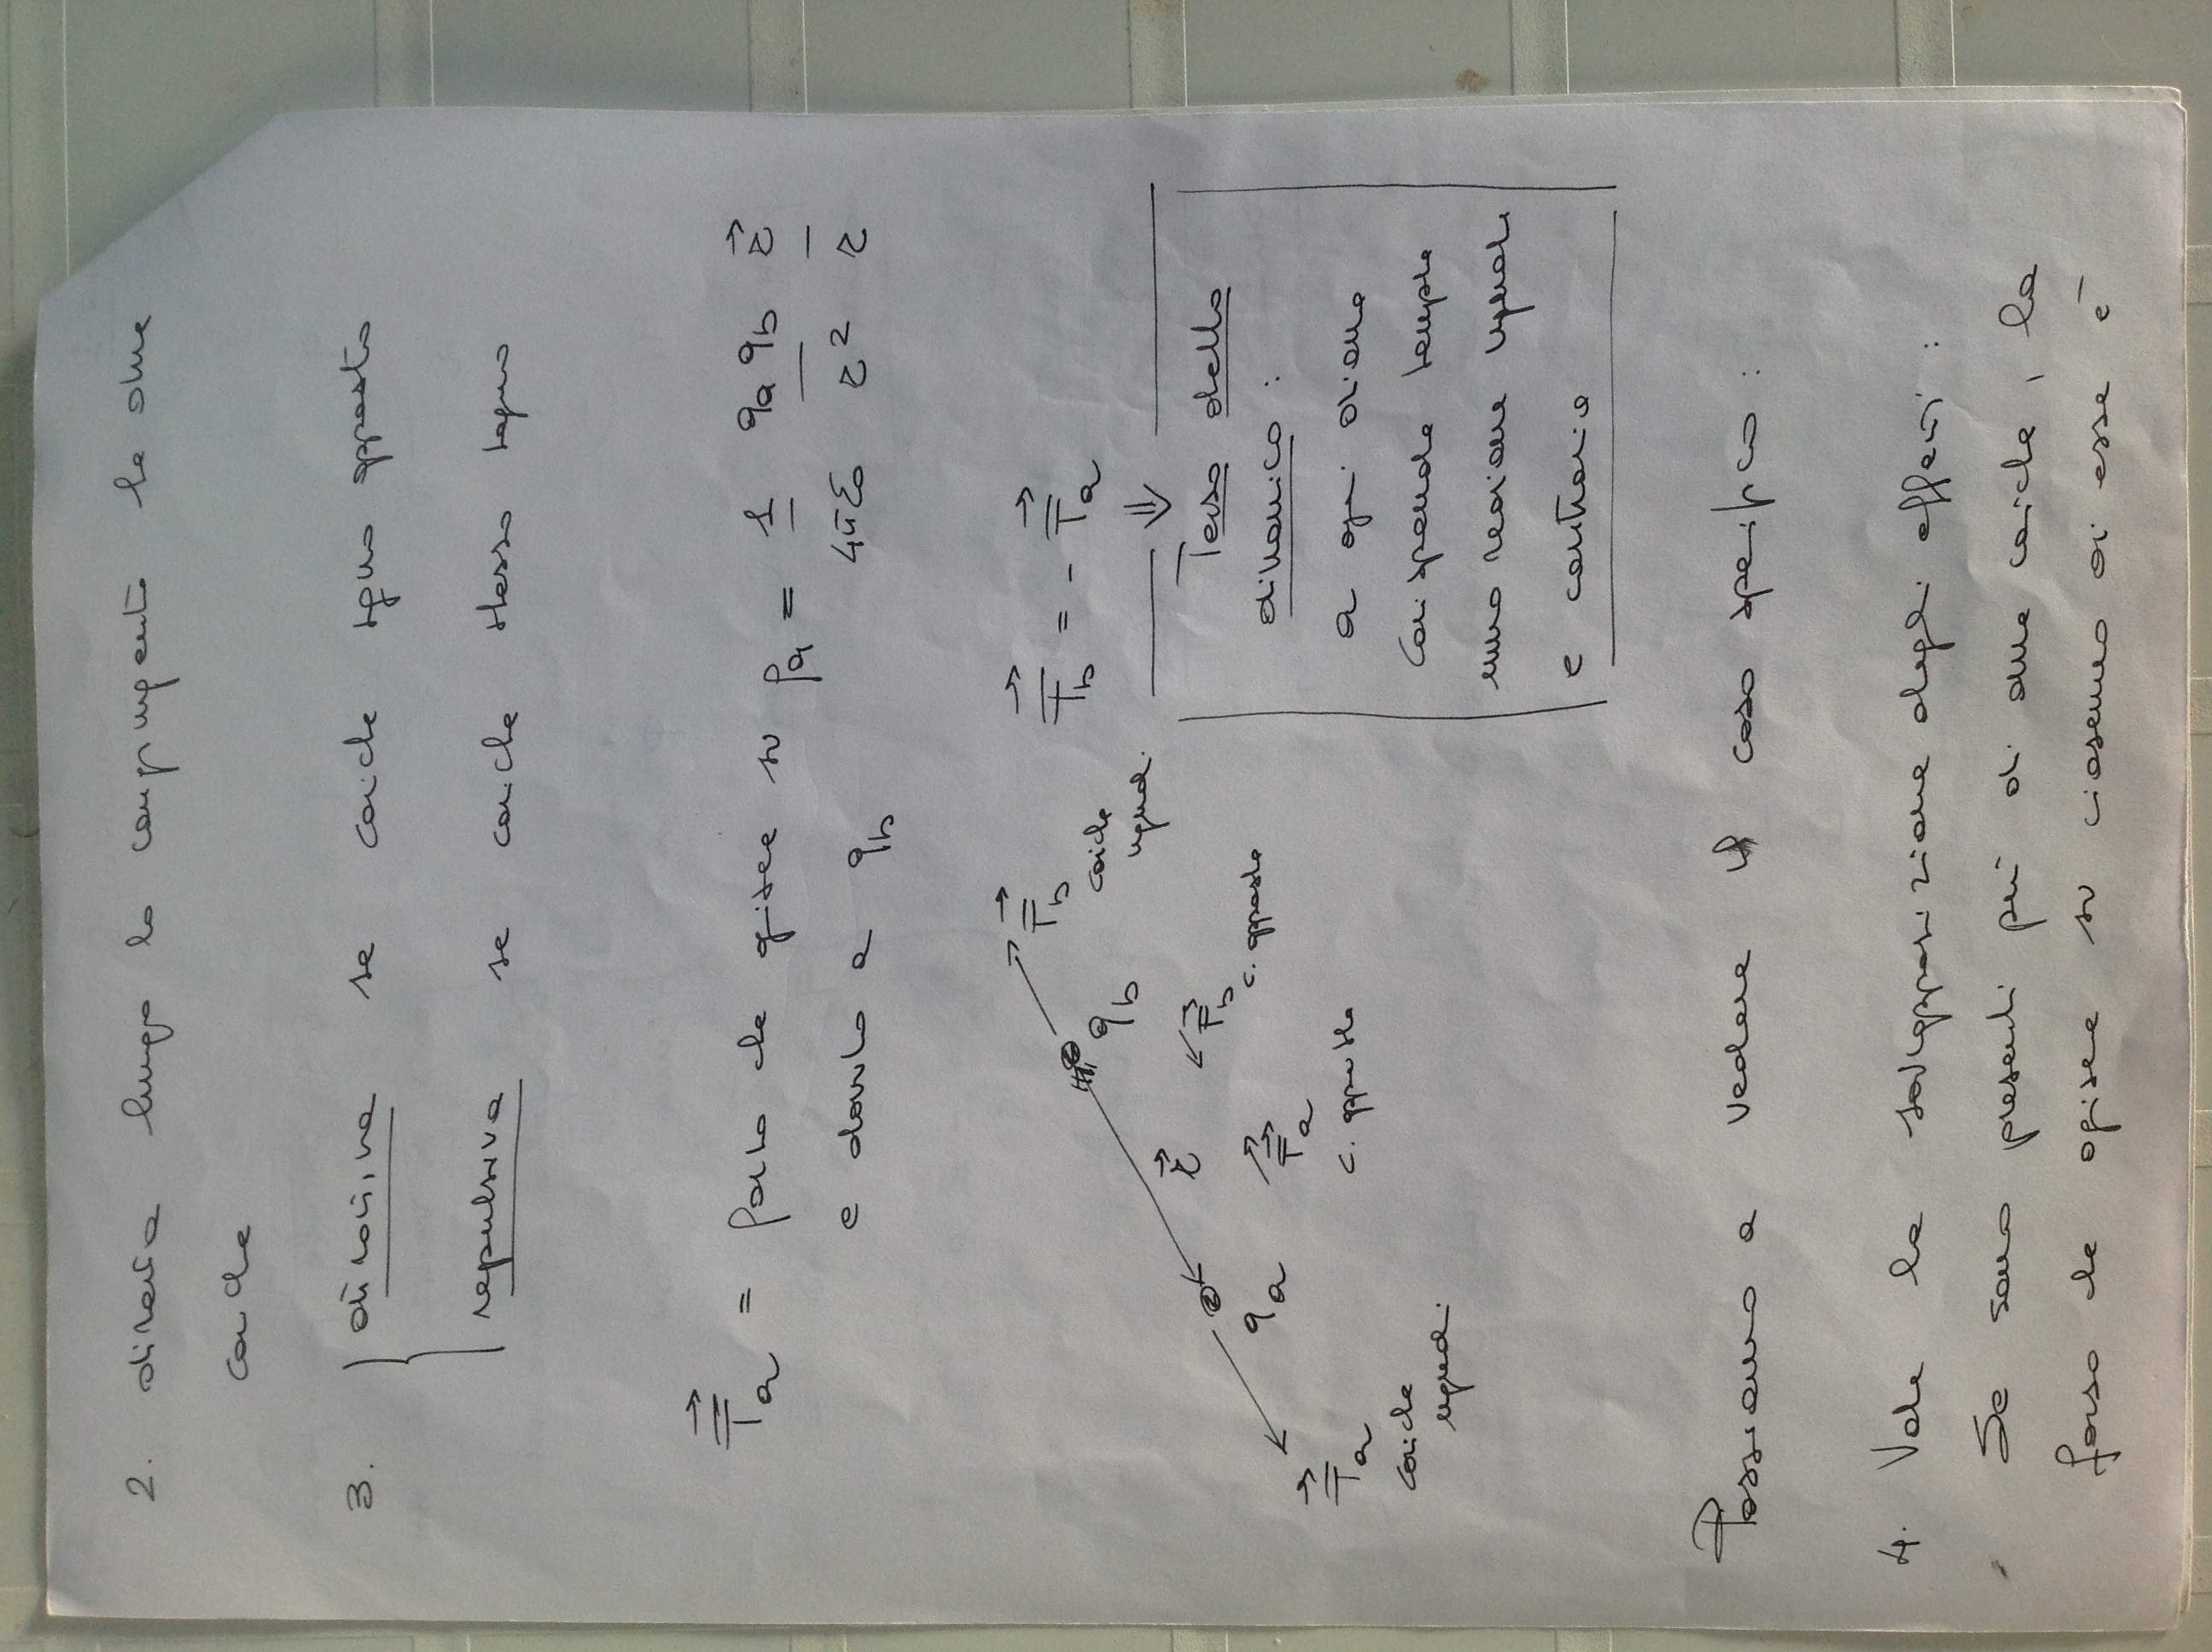 2. diretta lungo la congiungente le due
cariche
3. attrattiva se cariche segno opposto
repulsiva se cariche stesso segno
F⃗a = forza che agisce su qa = 1/4πε0 qa qb/r² r⃗/r
e dovuta a qb
F⃗b
cariche
uguali
qb
F⃗b = - F⃗a
⇓
r⃗
F⃗b
c. opposte
qa
F⃗a
c. opposte
F⃗a
cariche
uguali
Terza della
dinamica :
a ogni azione
corrisponde sempre
una reazione uguale
e contraria
Passiamo a vedere il caso specifico :
4. Vale la sovrapposizione degli effetti :
Se sono presenti più di due cariche, la
forza che agisce su ciascuna di esse è